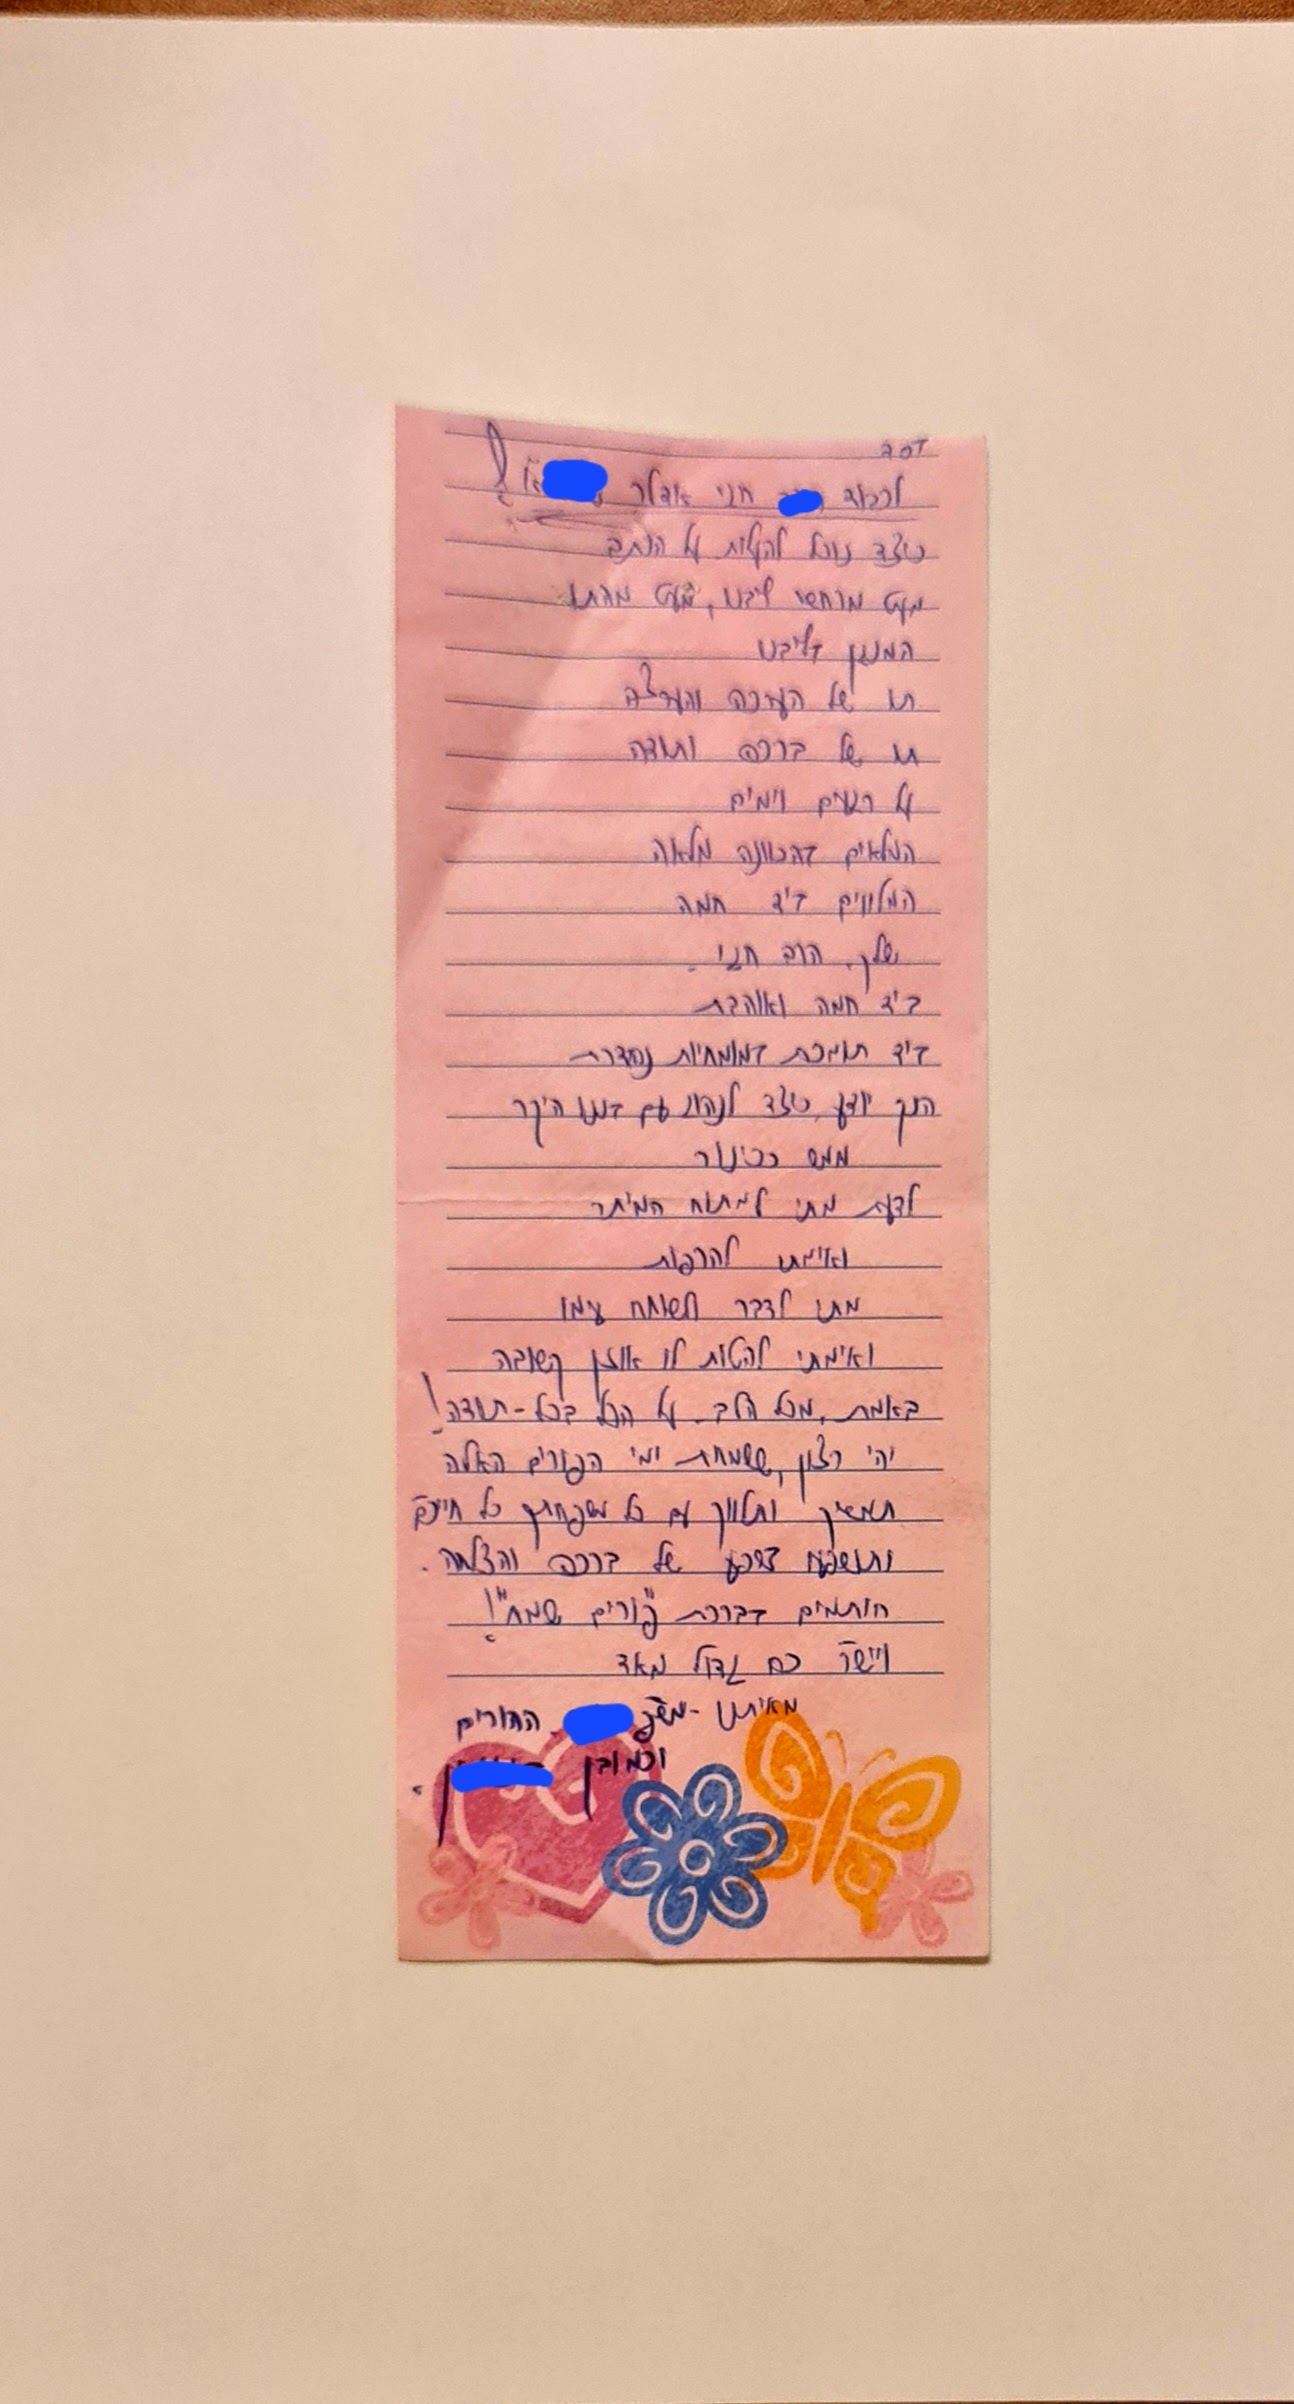 בסד
לכבוד חני אדלר
כיצד נוכל להעלות על הכתב
מעט מרחשי ליבנו, מעט מהתו
המנגן בליבנו
תו של הערכה והערצה
תו של ברכה ותודה
על רגעים וימים
המלאים בהכוונה מלאה
המלווים ביד חמה
שלך, הרב חני.
ביד חמה ואוהבת
ביד תומכת במומחיות נפדרת
הנך יודע כיצד לנהוג עם בננו היקר
ממש ככינור
לדעת מתי למתוח המיתר
ואימתי להרפות
מתי לדבר ולשוחח עימו
ואימתי להטות לו אוזן קשובה
באמת, מכל הלב. על הכל בכל-תודה!
יהי רצון, ששמחת ימי הפורים האלה
תמשיך ותלווך עם כל משפחתך כל חייכם
ותושפעו בשפע של ברכה והצלחה.
חותמים בברכת "פורים שמח"!
ויישר כח גדול מאד
מאיתנו - משפ' ההורים
וכמובן